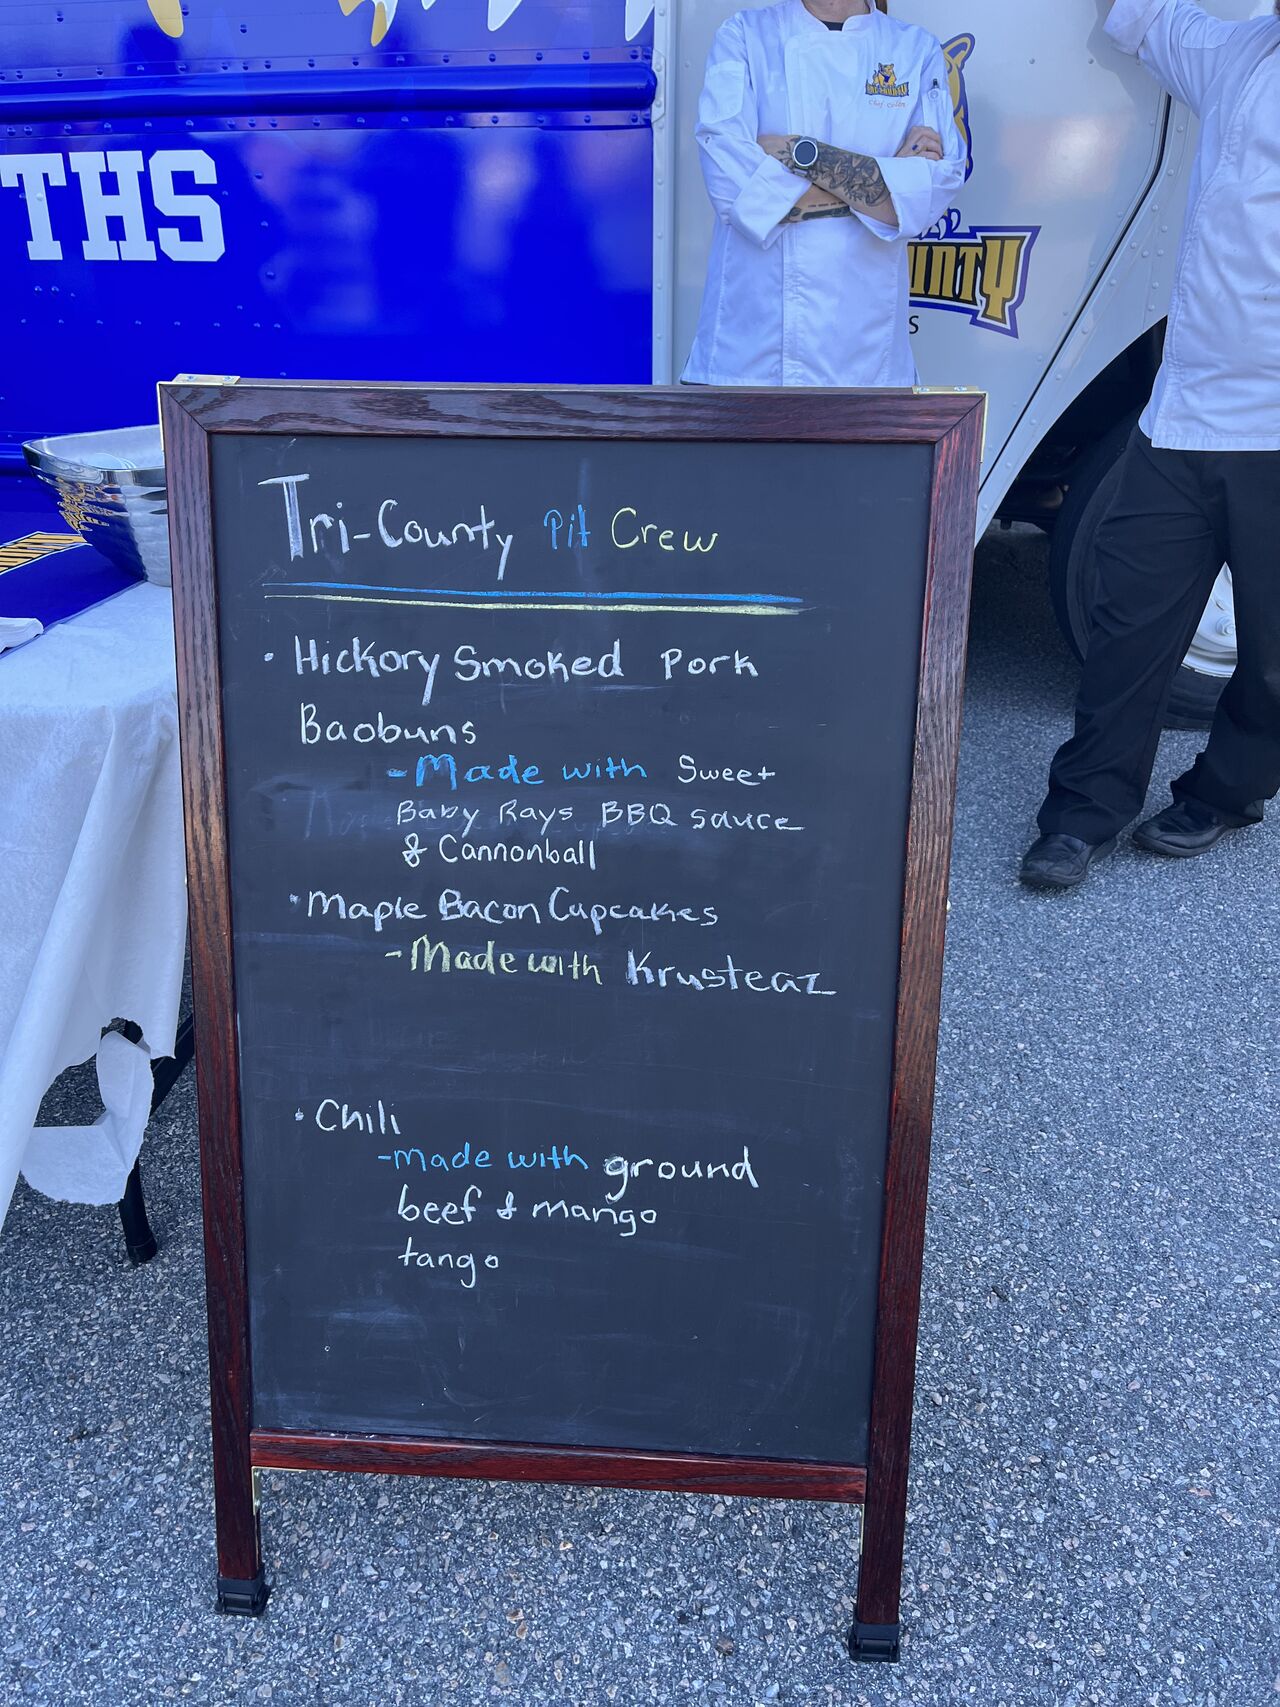 THS
Chef Colin
UNTY
S
Tri-County Pit Crew
• Hickory Smoked Pork
Baobuns
-Made with Sweet
Baby Rays BBQ sauce
& Cannonball
• Maple Bacon Cupcakes
-Made with Krusteaz
• Chili
-made with ground
beef & mango
tango